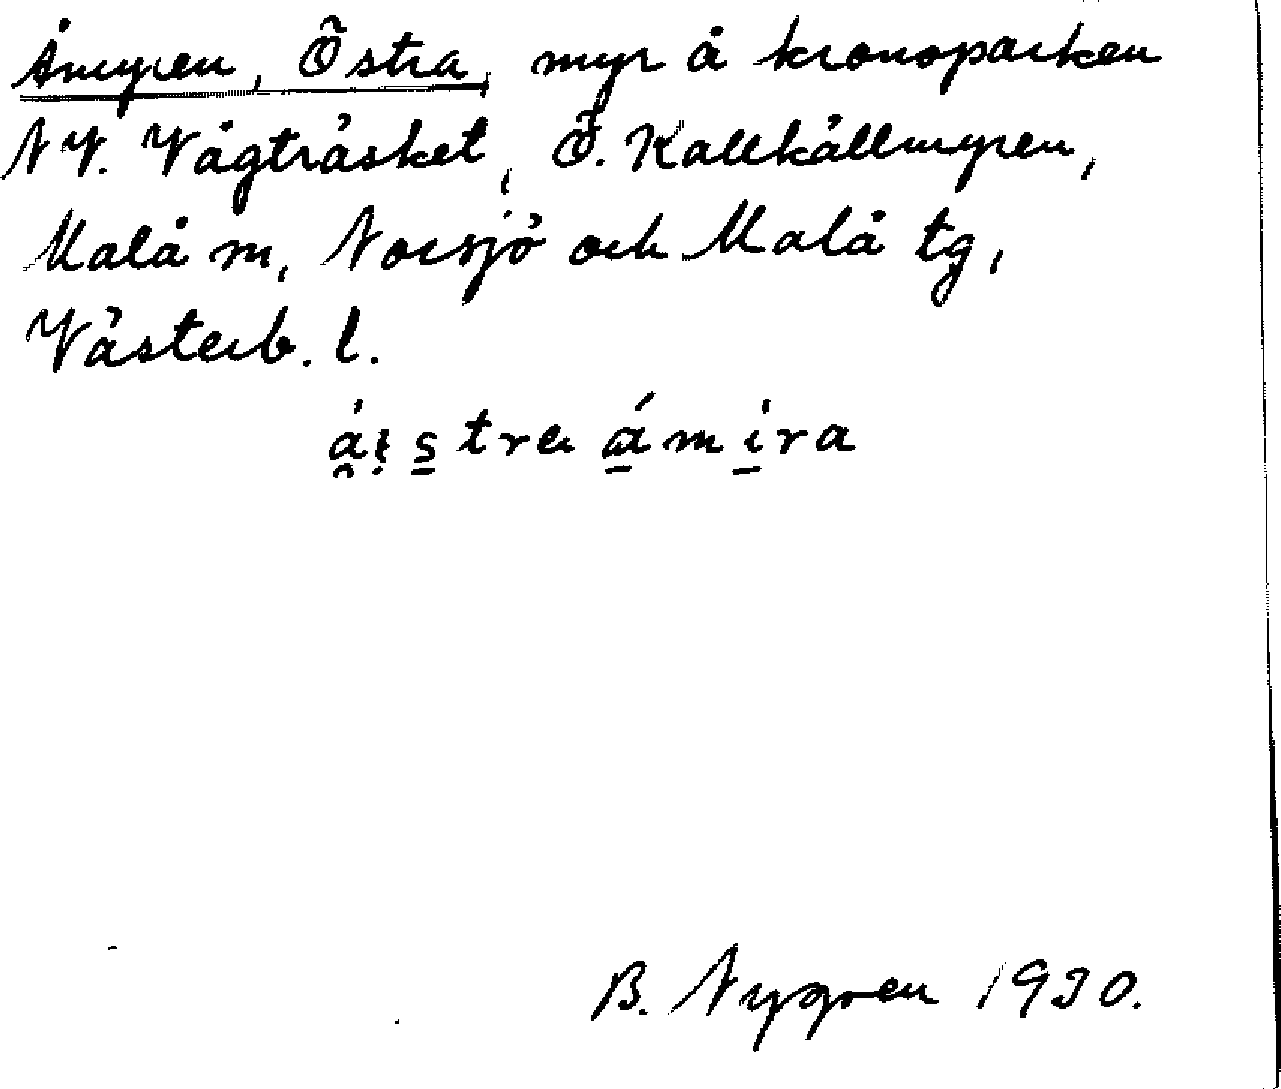 Åmyren, Östra, myr å kronoparken
NV. Vägträsket, Ö. Kallkällmyren,
Malå m, Norsjö och Malå tg,
Västerb. l.
B. Nygren 1930.